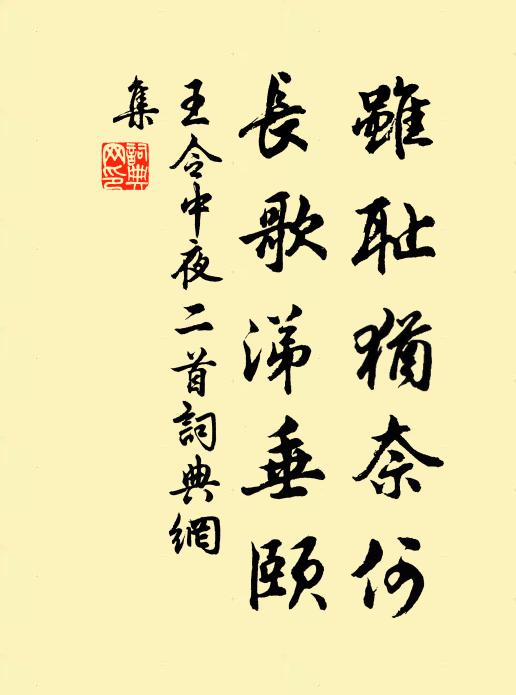 雖耻猶奈何
長歌涕垂頤
王令中夜二首詞典網
集
詞典
网印